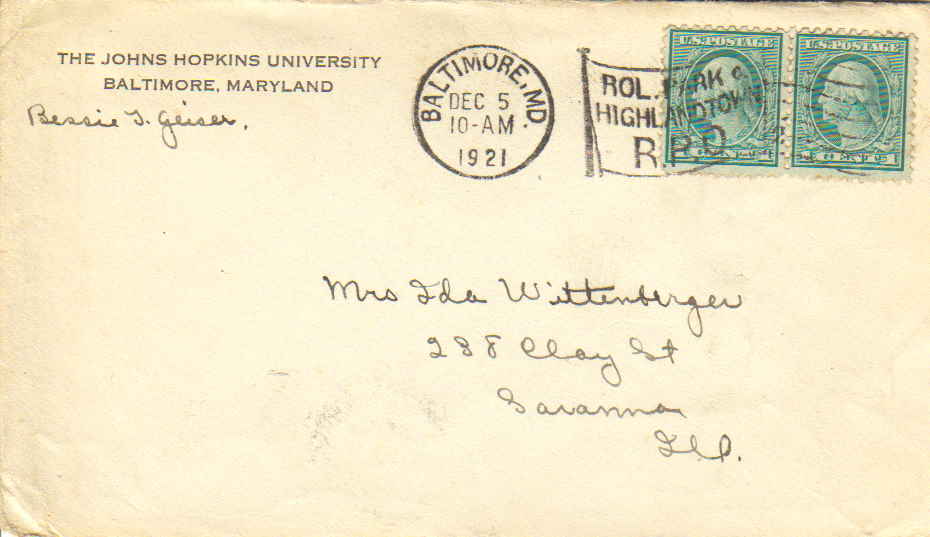 THE JOHNS HOPKINS UNIVERSITY
BALTIMORE, MARYLAND
Bessie I. Geiser.
BALTIMORE, MD.
DEC 5
10-AM
1921
ROL. PARK &
HIGHLANDTOWN
R.P.O.
U.S. POSTAGE
U.S. POSTAGE
Mrs Ida Wittenberger
288 Clay St
Savanna
Ill.